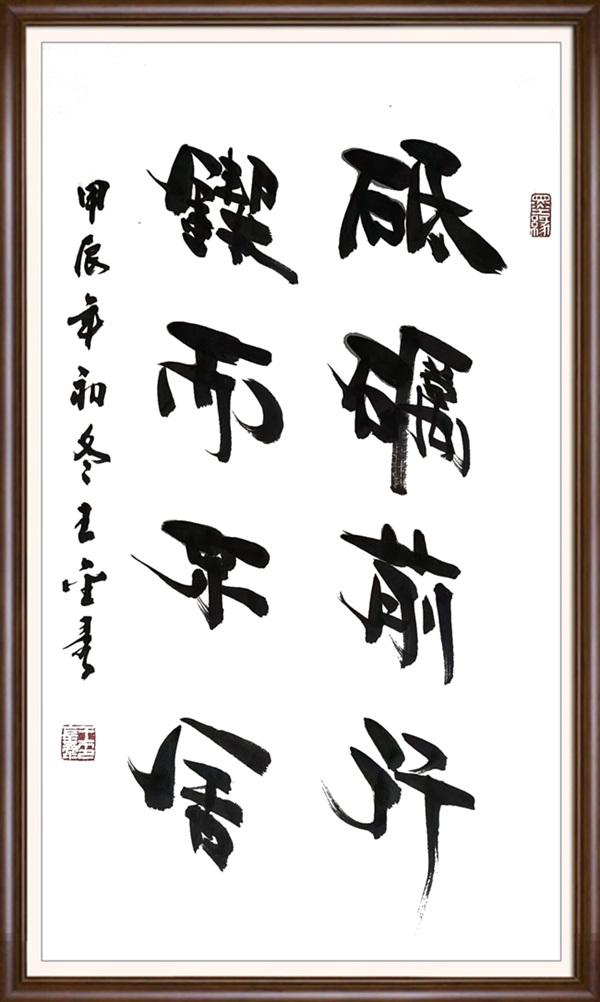 砥礪前行
鍥而不舍
甲辰年初冬王書